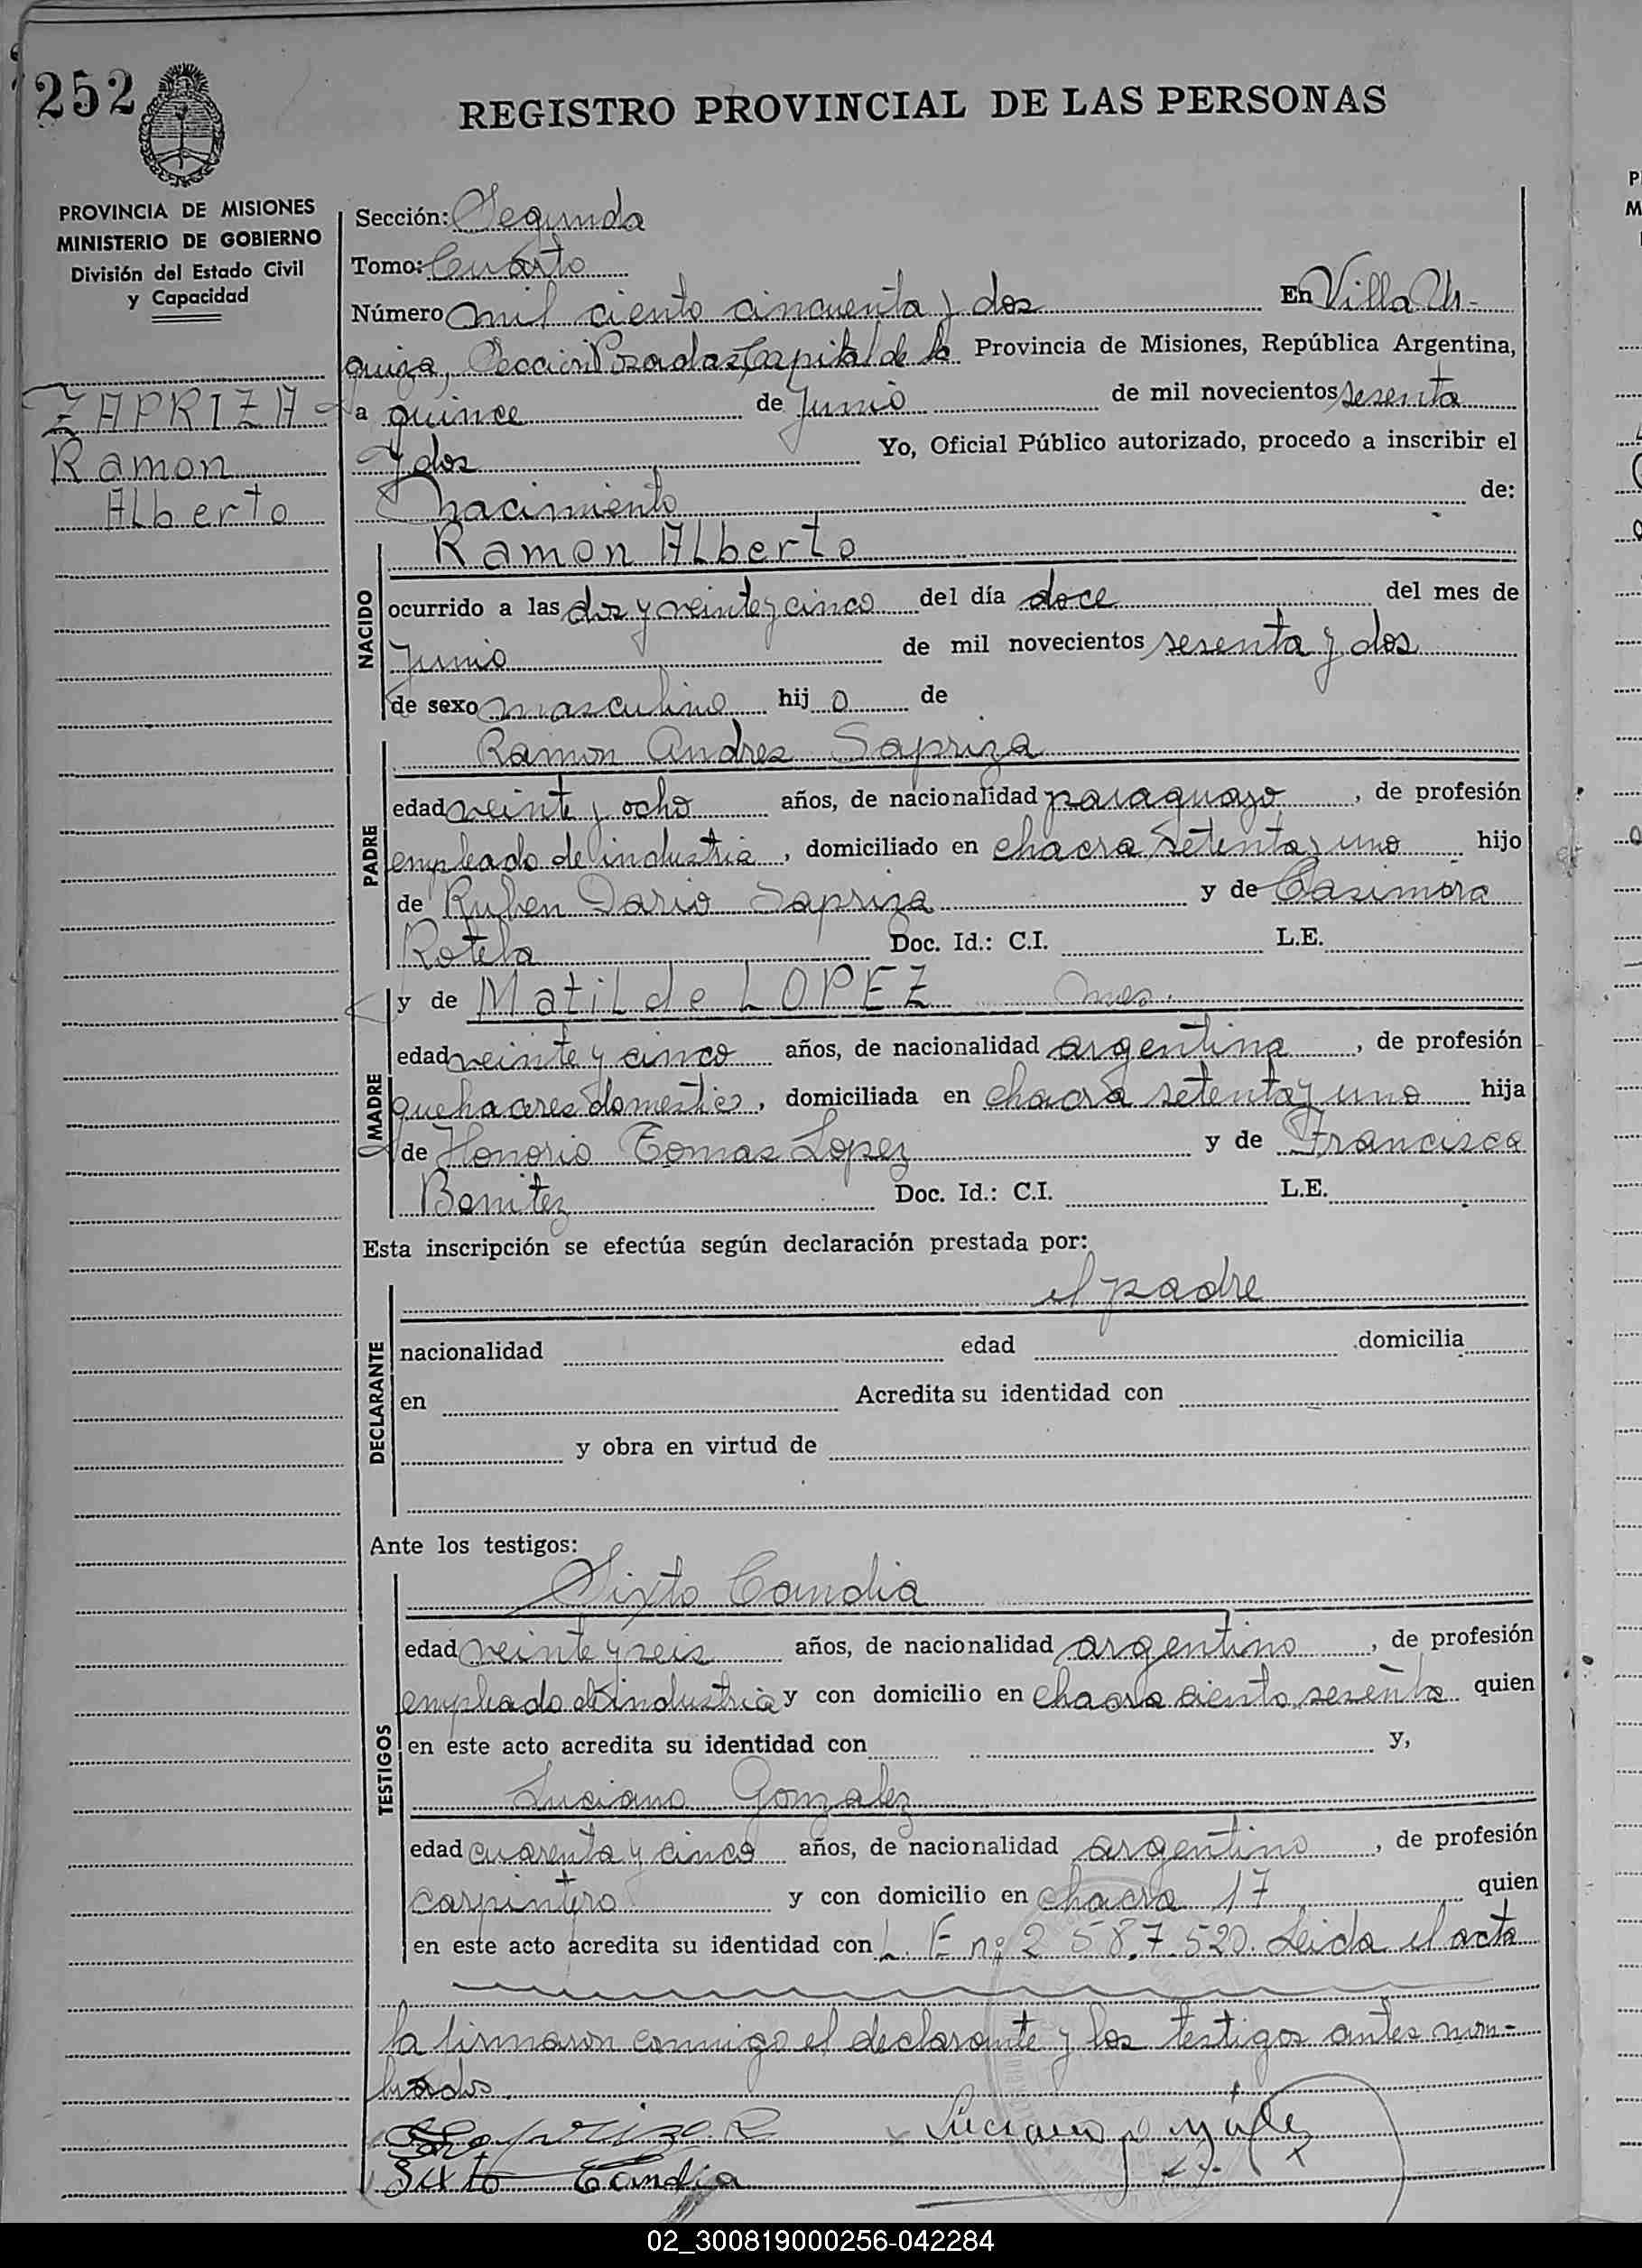 252
REGISTRO PROVINCIAL DE LAS PERSONAS
PROVINCIA DE MISIONES
MINISTERIO DE GOBIERNO
División del Estado Civil
y Capacidad
ZAPRIZA
Ramon
Alberto
Sección: Segunda
Tomo: Cuarto
Número mil ciento cincuenta y dos En Villa Ur-
quiza, Sección Posadas Capital de la Provincia de Misiones, República Argentina,
a quince de Junio de mil novecientos sesenta
y dos Yo, Oficial Público autorizado, procedo a inscribir el
nacimiento de:
NACIDO
Ramon Alberto
ocurrido a las dos y veinte y cinco del día doce del mes de
Junio de mil novecientos sesenta y dos
de sexo masculino hij o de
PADRE
Ramon Andres Sapriza
edad veinte y ocho años, de nacionalidad paraguayo, de profesión
empleado de industria, domiciliado en chacra setenta y uno hijo
de Ruben Dario Sapriza y de Casimora
Rotela Doc. Id.: C.I. L.E.
MADRE
y de Matilde LOPEZ
edad veinte y cinco años, de nacionalidad argentina, de profesión
quehaceres domestico, domiciliada en chacra setenta y uno hija
de Honorio Tomas Lopez y de Francisca
Benitez Doc. Id.: C.I. L.E.
Esta inscripción se efectúa según declaración prestada por:
DECLARANTE
el padre
nacionalidad edad domicilia
en Acredita su identidad con
y obra en virtud de
Ante los testigos:
TESTIGOS
Sixto Candia
edad veinte y seis años, de nacionalidad argentino, de profesión
empleado de industria y con domicilio en chacra ciento sesenta quien
en este acto acredita su identidad con y,
Luciano Gonzalez
edad cuarenta y cinco años, de nacionalidad argentino, de profesión
carpintero y con domicilio en chacra 17 quien
en este acto acredita su identidad con L. E nº 2.587.520. Leida el acta
la firmaron conmigo el declarante y los testigos antes nom-
brados.
Sapriza R Luciano Gonzalez
Sixto Candia
02_300819000256-042284